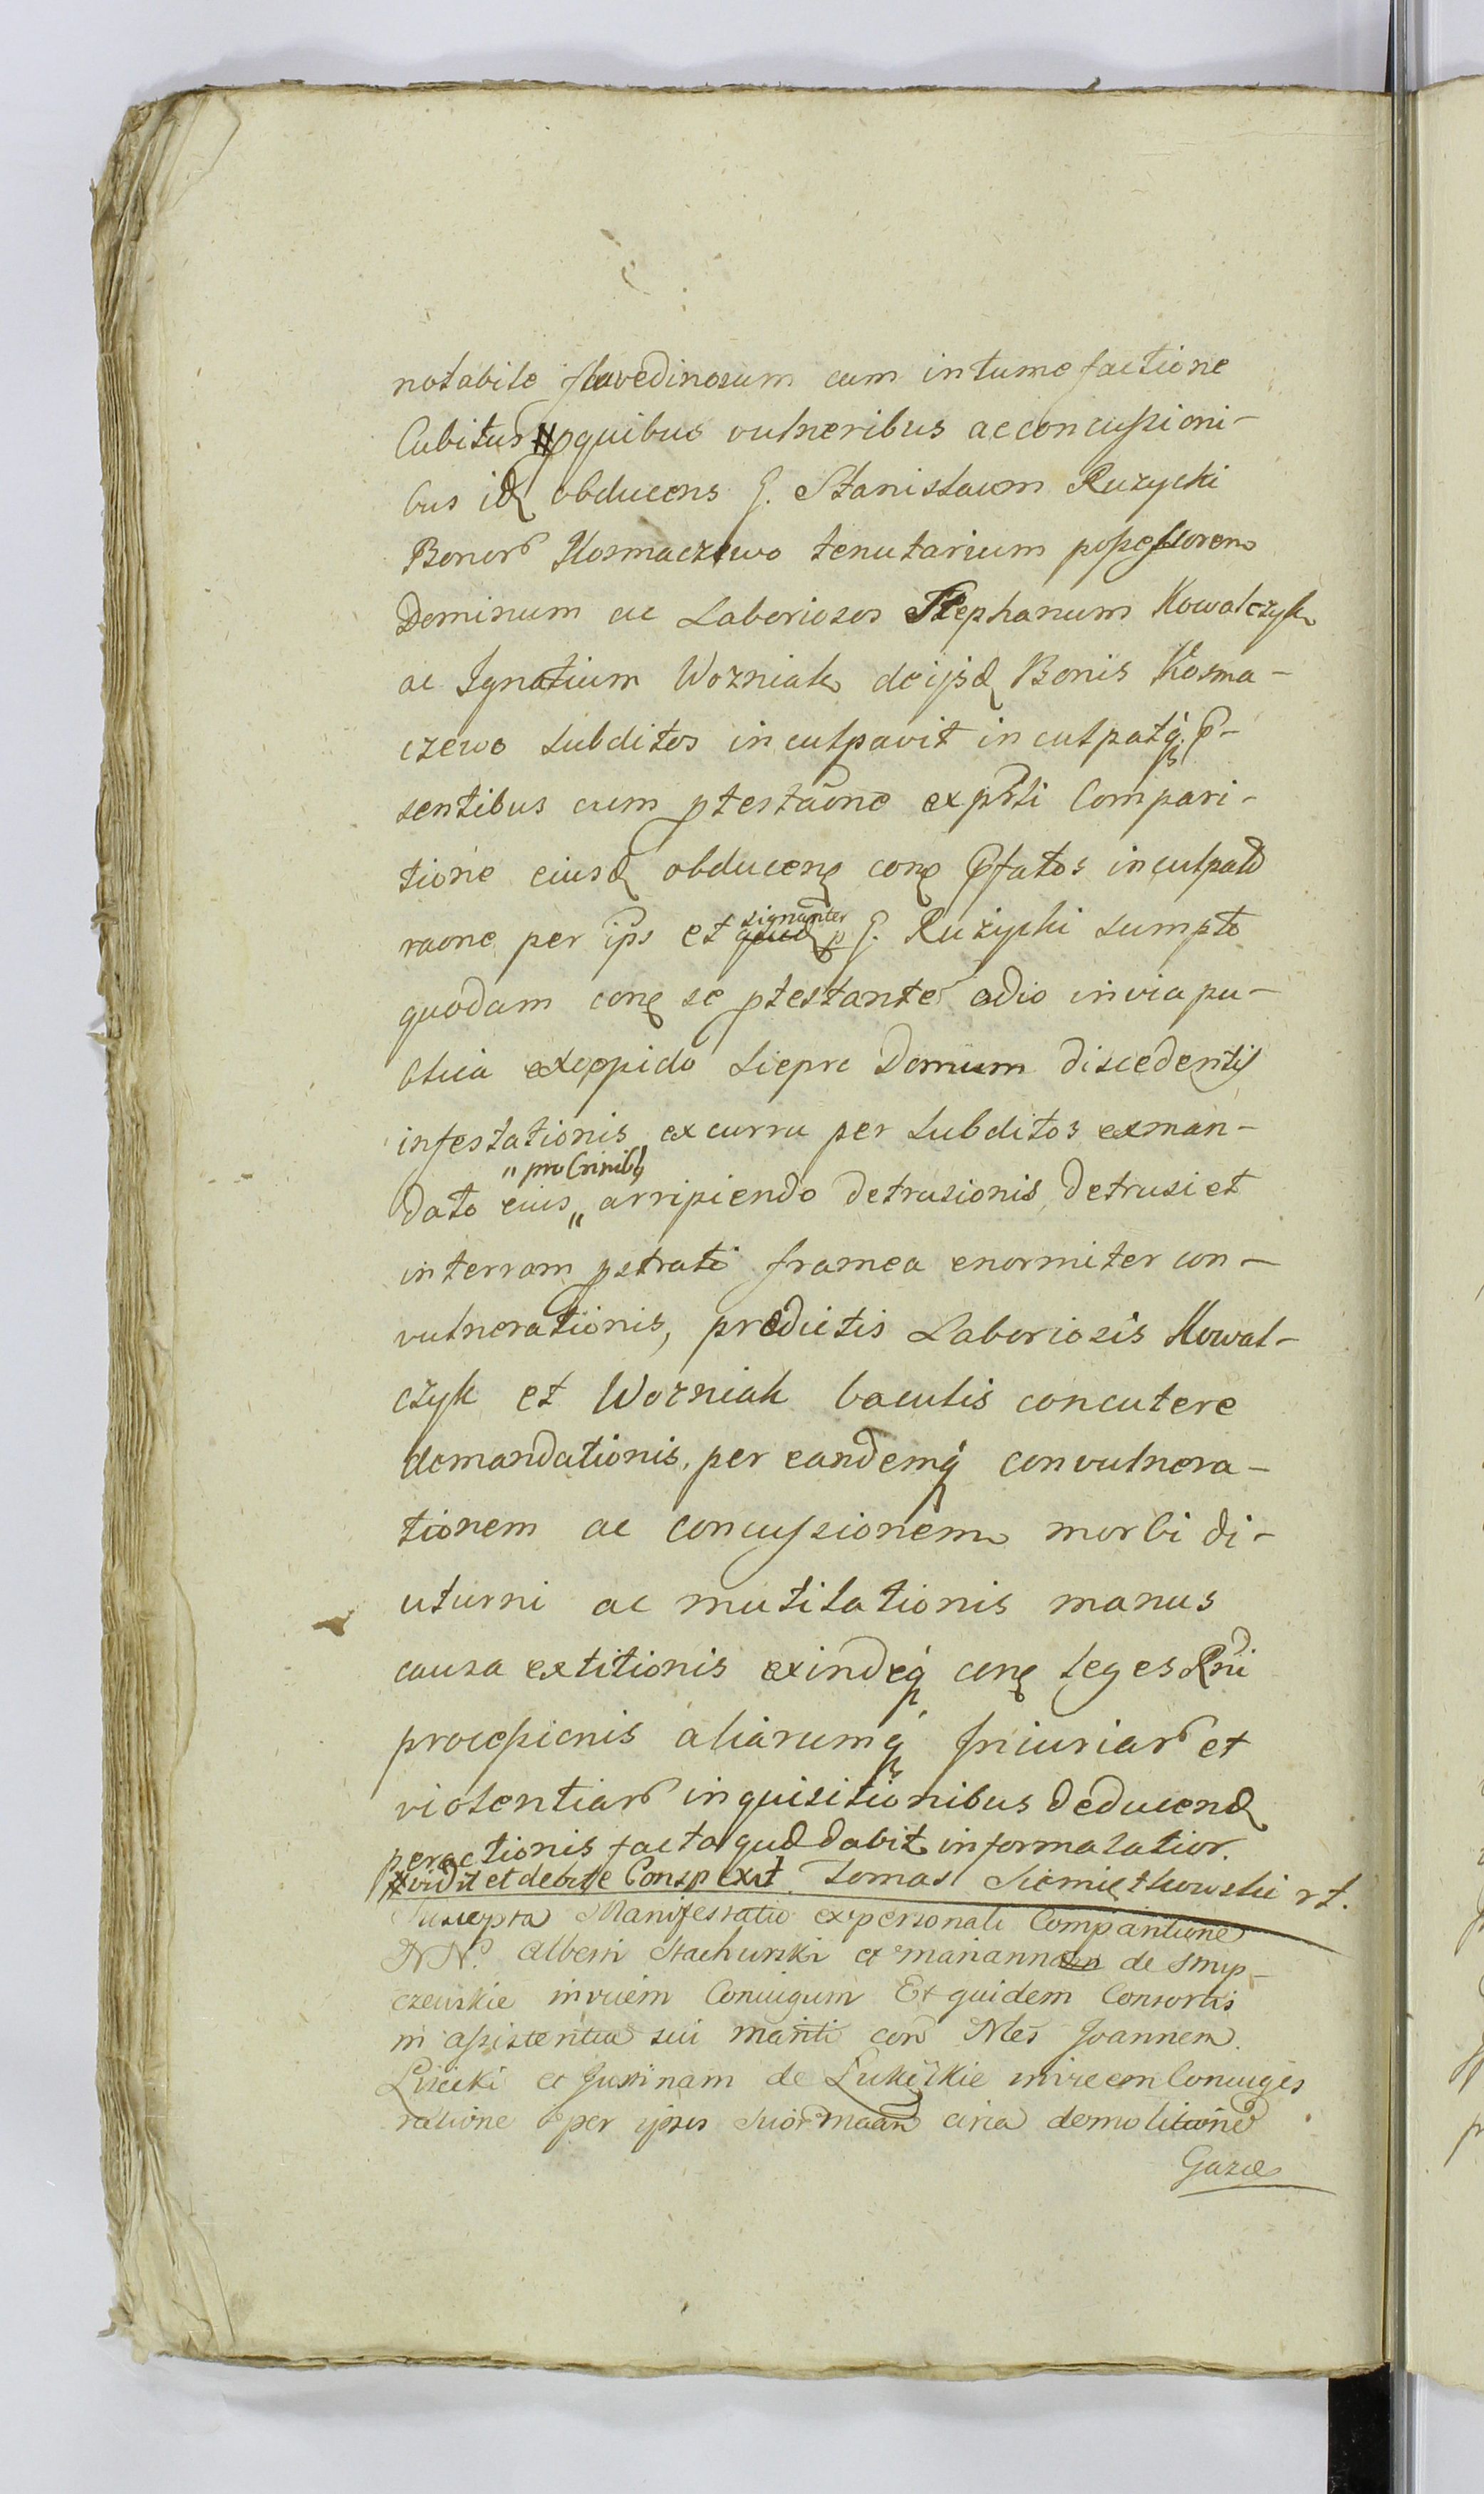 notabile flavedinosum cum intumefactione
Cubitus pquibus vulneribus ac concussioni-
bus id obducens G. Stanislaum Ruzycki
Bonor Kosmaczewo tenutarium possessorem
Dominum ac Laboriosos Stephanum Kowalczyk
ac Ignatium Wozniak de ijsd Bonis Kosma-
czewo subditos inculpavit inculpatq. P-
sentibus cum ptestaone ex pnti Compari-
tione eiusd obducen con Pfatos inculpat
raone per ips et signanter p G. Ruzycki sumpto
quodam con se ptestante odio in via pu-
blica ex oppido Siepre Domum discedentis
infestationis ex curru per subditos ex man-
"pro Crinib
dato eius " arripiendo detrusionis, detrusi et
in terram pstrati framea enormiter con-
vulnerationis, predictis Laboriosis Kowal-
czyk et Wozniak baculis concutere
demandationis, per eandemq convulnera-
tionem ac concussionem morbi di-
uturni ac mutilationis manus
causa extitionis exindeq con leges Rni
processionis aliarumq Iniuriar et
violentiar inquisitionibus deducend
peractionis facta qud dabit informa latior.
vidit et debite Conspexit. Tomas Siemiętkowski rt.
Suscepta Manifestatio ex personali Comparitione
NN. Alberti Stachurski et Marianna de Smp-
czewskie invicem Coniugum Et quidem Consortis
in assistentia sui mariti con Nles Joannem
Lisicki et Justinam de invicem Coniuges
ratione per ipsos circa demolitione
Gazae